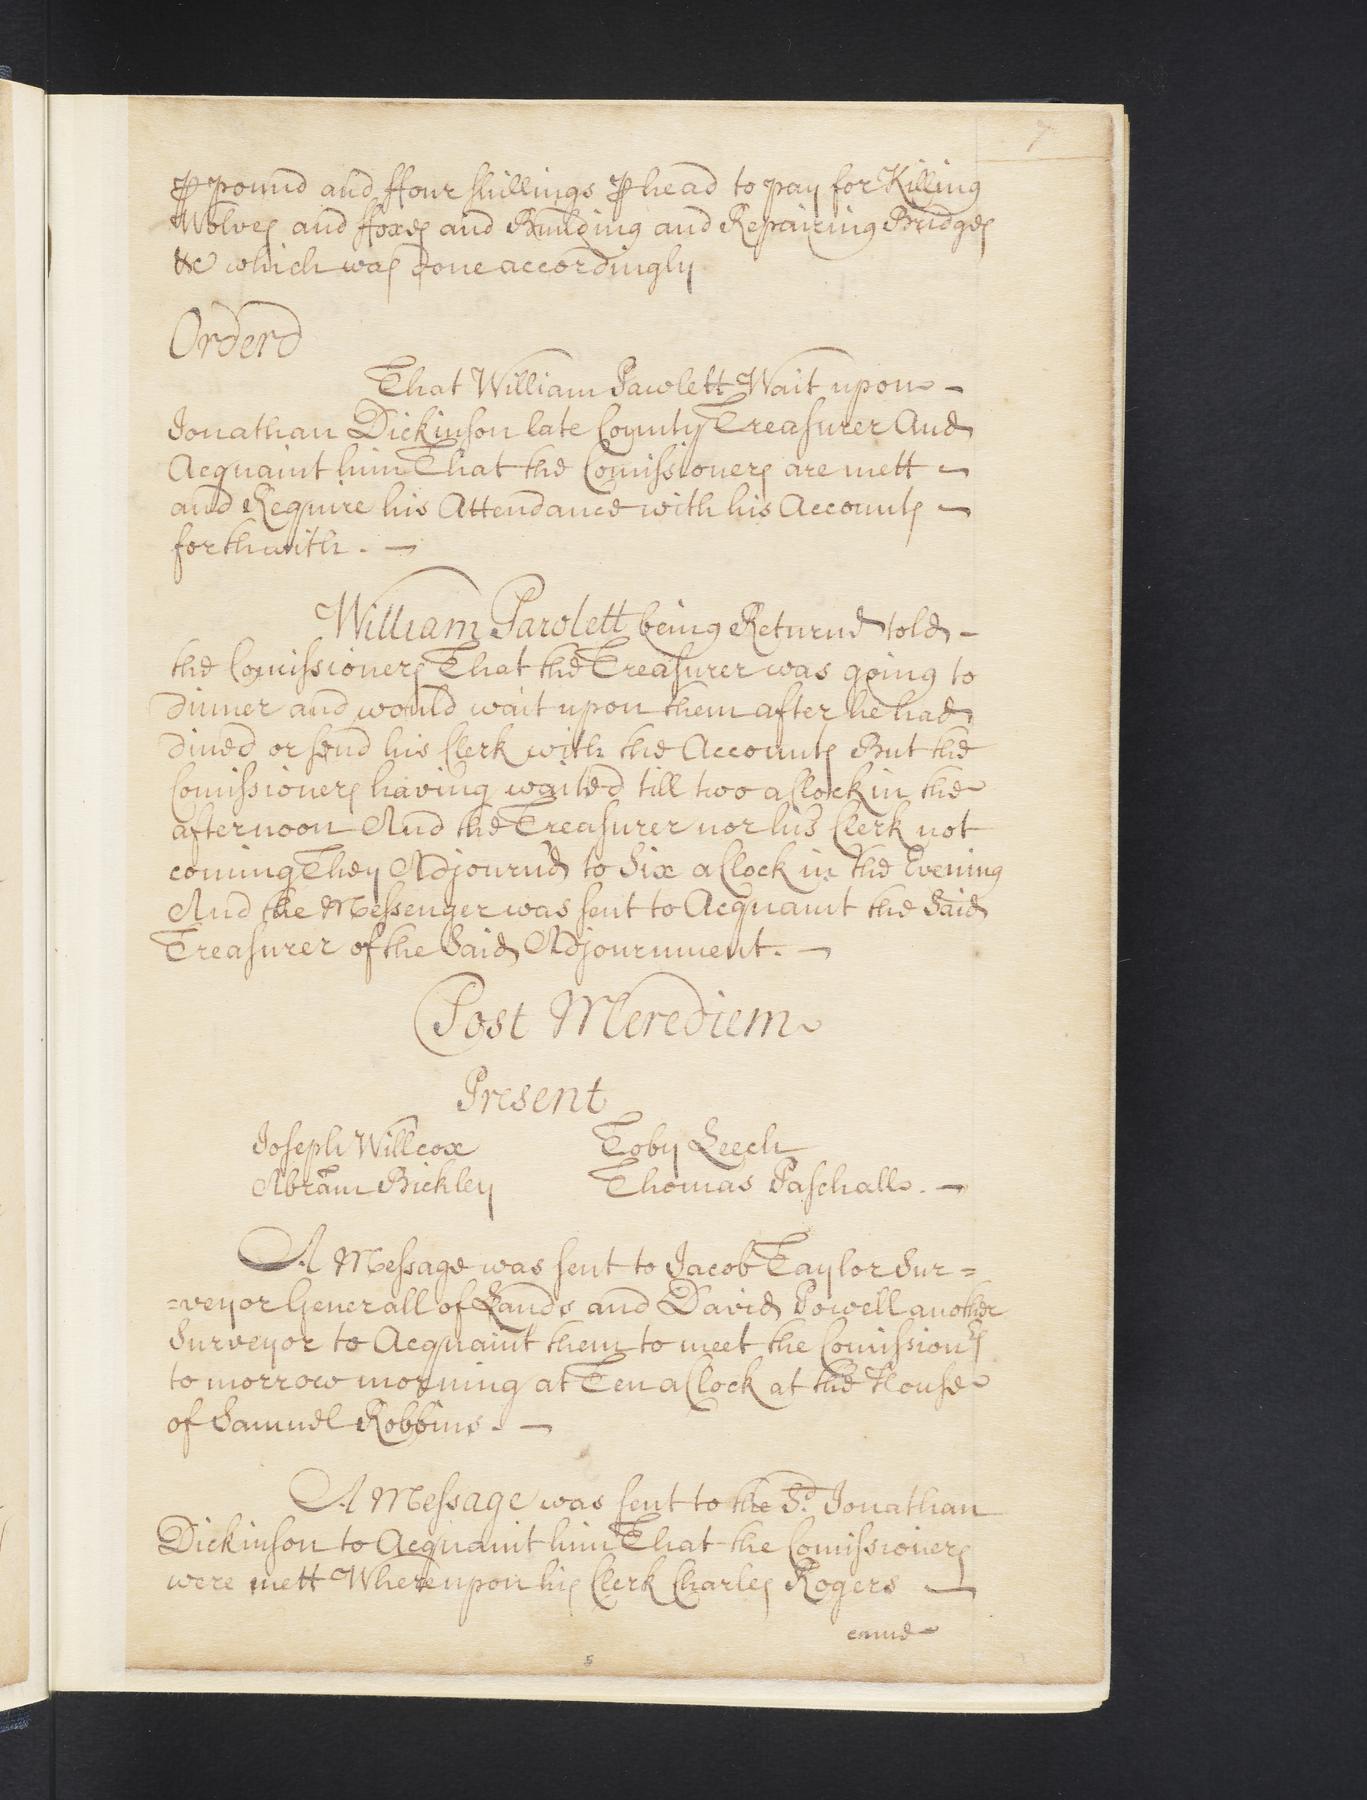 7
⅌ pound and ffour shillings ⅌ head to pay for Killing
Wolves and ffoxes and Building and Repairing Bridges
&c which was done accordingly
Orderd
That William Pawlett Wait upon -
Jonathan Dickinson late County Treasurer And
Acquaint him That the Comissioners are mett -
and Require his Attendance with his Accounts -
forthwith . -
William Pawlett being Returnd told -
the Comissioners That the Treasurer was going to
dinner and would wait upon them after he had
dined or send his Clerk with the Accounts But the
Comissioners having waited till two a Clock in the
afternoon And the Treasurer nor his Clerk not
coming They Adjourn'd to Six a Clock in the Evening
And the Messenger was sent to Acquaint the Said
Treasurer of the Said Adjournment . -
Post Merediem
Present
Joseph Willcox Toby Leech
Abram Bickley Thomas Paschall . -
A Message was sent to Jacob Taylor Sur=
=veyor Generall of Lands and David Powell another
Surveyor to Acquaint them to meet the Comissionrs
to morrow morning at Ten a Clock at the House
of Samuel Robbins . -
A Message was sent to the Sd. Jonathan
Dickinson to Acquaint him That the Comissioners
were mett Whereupon his Clerk Charles Rogers -
came -
5